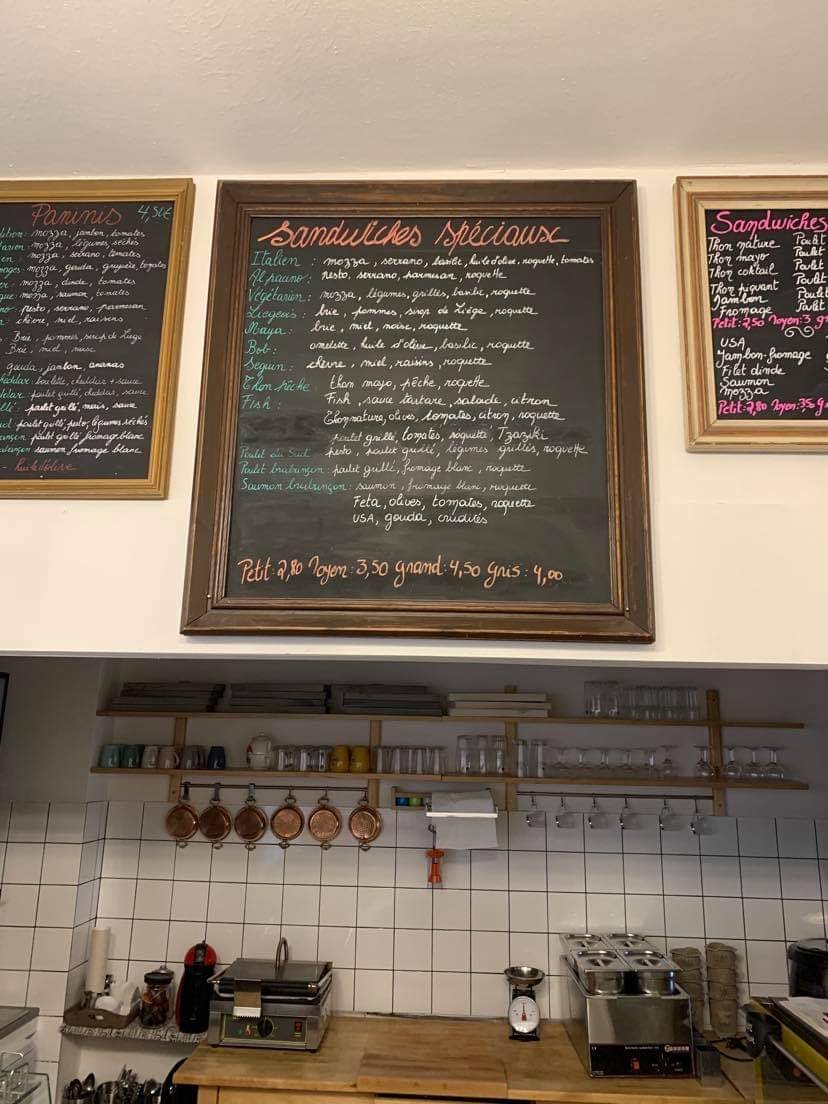 Paninis 4,50€
mozza, jambon, tomates
mozza, légumes séchés
mozza, serrano, tomates
mozza, gouda, gruyère, tomates
mozza, dinde, tomates
mozza, saumon, tomates
pesto, serrano, parmesan
chèvre, miel, raisins
Brie, pommes, sirop de Liège
Brie, miel, noix
gouda, jambon, ananas
boulette, cheddar + sauce
poulet grillé, cheddar, sauce
poulet grillé, maïs, sauce
poulet grillé, pesto, légumes séchés
poulet grillé, fromage blanc
saumon, fromage blanc
- huile d'olive
Sandwiches Spéciaux
Italien : mozza, serrano, basilic, huile d'olive, roquette, tomates
Al pacino : pesto, serrano, parmesan, roquette
Végétarien : mozza, légumes grillés, basilic, roquette
Liégeois : brie, pommes, sirop de Liège, roquette
Maya : brie, miel, noix, roquette
Bob : omelette, huile d'olive, basilic, roquette
Seguin : chèvre, miel, raisins, roquette
Thon pêche : thon mayo, pêche, roquette
Fish : Fish, sauce tartare, salade, citron
Thon nature, olives, tomates, citron, roquette
poulet grillé, tomates, roquette, Tzaziki
Poulet du Sud : pesto, poulet grillé, légumes grillés, roquette
Poulet brabançon : poulet grillé, fromage blanc, roquette
Saumon brabançon : saumon, fromage blanc, roquette
Feta, olives, tomates, roquette
USA, gouda, crudités
Petit : 2,80 Moyen : 3,50 grand : 4,50 Gris : 4,00
Sandwiches
Thon nature Poulet
Thon mayo Poulet
Thon coktail Poulet
Thon piquant Poulet
Jambon Poulet
Fromage Poulet
Petit : 2,50 Moyen : 3
USA
Jambon-fromage
Filet dinde
Saumon
Mozza
Petit : 2,80 Moyen : 3,50